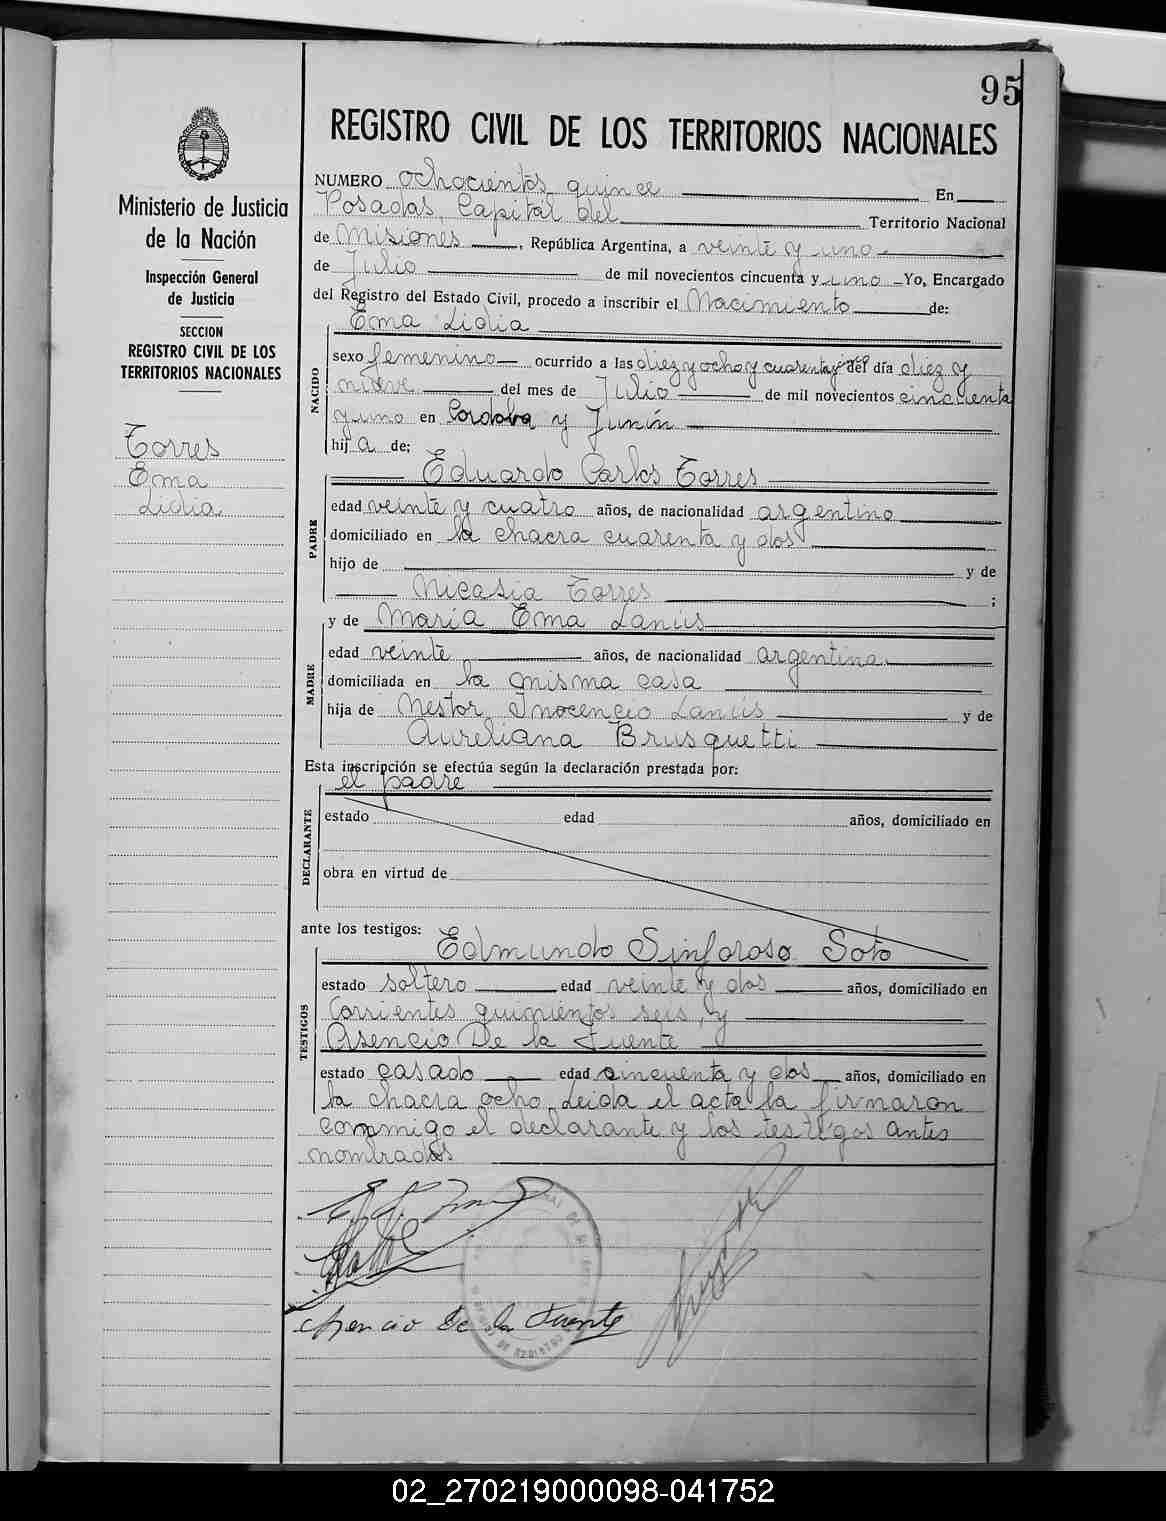 95
REGISTRO CIVIL DE LOS TERRITORIOS NACIONALES
Ministerio de Justicia
de la Nación
Inspección General
de Justicia
SECCION
REGISTRO CIVIL DE LOS
TERRITORIOS NACIONALES
Torres
Ema
Lidia
NUMERO ochocientos quince En
Posadas, Capital del Territorio Nacional
de Misiones, República Argentina, a veinte y uno
de Julio de mil novecientos cincuenta y uno Yo, Encargado
del Registro del Estado Civil, procedo a inscribir el Nacimiento de:
Ema Lidia
NACIDO
sexo femenino ocurrido a las diez y ocho y cuarenta del día diez y
nueve del mes de Julio de mil novecientos cincuenta
y uno en Cordoba y Junín
hija de;
Eduardo Carlos Torres
PADRE
edad veinte y cuatro años, de nacionalidad argentino
domiciliado en la chacra cuarenta y dos
hijo de y de
Nicasia Torres ;
y de María Ema Lanús
MADRE
edad veinte años, de nacionalidad argentina
domiciliada en la misma casa
hija de Nestor Inocencio Lanús y de
Aureliana Brusquetti
Esta inscripción se efectúa según la declaración prestada por:
el padre
DECLARANTE
estado edad años, domiciliado en
obra en virtud de
ante los testigos:
Edmundo Sinforoso Soto
TESTIGOS
estado soltero edad veinte y dos años, domiciliado en
Corrientes quinientos seis, y
Asencio De la Fuente
estado casado edad cincuenta y dos años, domiciliado en
la chacra ocho. Leida el acta la firmaron
conmigo el declarante y los testigos antes
nombrados
Asencio De la Fuente
02_270219000098-041752